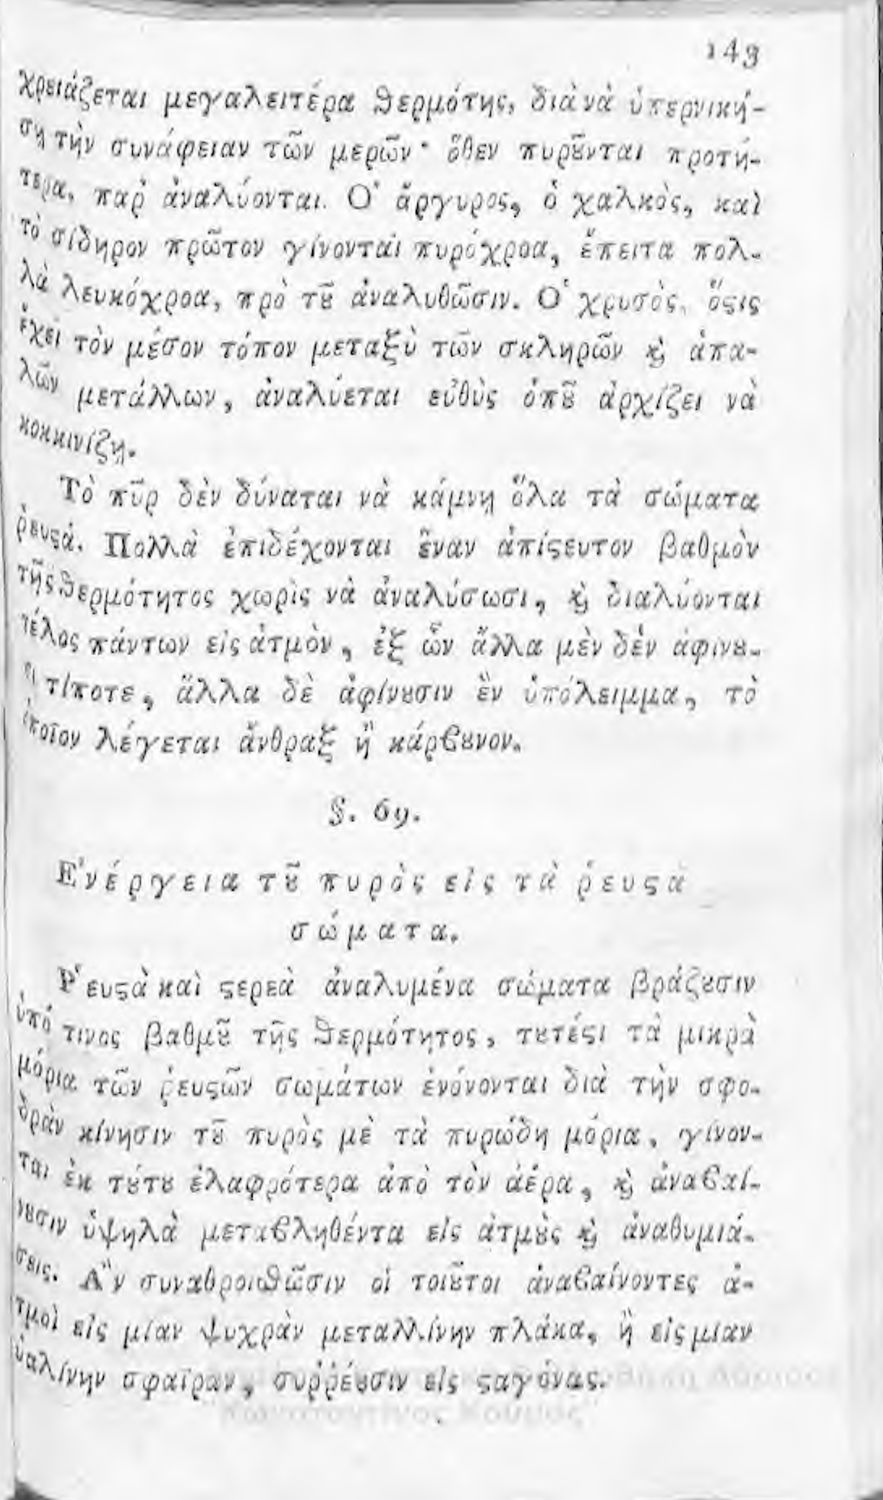 143
χρειάζεται μεγαλειτέρα θερμότης, διὰ νὰ ὑπερνική-
σῃ τὴν συνάφειαν τῶν μερῶν· ὅθεν πυρȣ͂νται προτή-
τερα, παρ᾽ ἀναλύονται. Ὁ ἄργυρος, ὁ χαλκὸς, καὶ
τὸ σίδηρον πρῶτον γίνονται πυρόχροα, ἔπειτα πολ-
λὰ λευκόχροα, πρὸ τȣ͂ ἀναλυθῶσιν. Ὁ χρυσὸς, ὅϛις
ἔχει τὸν μέσον τόπον μεταξὺ τῶν σκληρῶν ϗ̀ ἁπα-
λῶν μετάλλων, ἀναλύεται εὐθὺς ὁπȣ͂ ἀρχίζει νὰ
κοκκινίζῃ.
Τὸ πῦρ δὲν δύναται νὰ κάμνῃ ὅλα τὰ σώματα
ῥευϛά. Πολλὰ ἐπιδέχονται ἕναν ἀπίϛευτον βαθμὸν
τῆς θερμότητος χωρὶς νὰ ἀναλύσωσι, ϗ̀ διαλύονται
τέλος πάντων εἰς ἀτμὸν, ἐξ ὧν ἄλλα μὲν δὲν ἀφίνȣ-
σι τίποτε, ἄλλα δὲ ἀφίνȣσιν ἓν ὑπόλειμμα, τὸ
ὁποῖον λέγεται ἄνθραξ ἢ κάρβȣνον.
§. 69.
Ἐνέργεια τȣ͂ πυρὸς εἰς τὰ ῥευϛὰ
σώματα.
Ῥευϛὰ καὶ ϛερεὰ ἀναλυμένα σώματα βράζȣσιν
ὑπό τινος βαθμȣ͂ τῆς θερμότητος, τȣτέϛι τὰ μικρὰ
μόρια τῶν ῥευϛῶν σωμάτων ἑνόνονται διὰ τὴν σφο-
δρὰν κίνησιν τȣ͂ πυρὸς μὲ τὰ πυρώδη μόρια, γίνον-
ται ἐκ τȣ́τȣ ἐλαφρότερα ἀπὸ τὸν ἀέρα, ϗ̀ ἀναβαί-
νȣσιν ὑψηλὰ μεταβληθέντα εἰς ἀτμȣ̀ς ϗ̀ ἀναθυμιά-
σεις. Ἂν συναθροισθῶσιν οἱ τοιȣ͂τοι ἀναβαίνοντες ἀ-
τμοὶ εἰς μίαν ψυχρὰν μεταλλίνην πλάκα, ἢ εἰς μίαν
ὑαλίνην σφαῖραν, συῤῥέȣσιν εἰς ϛαγόνας.